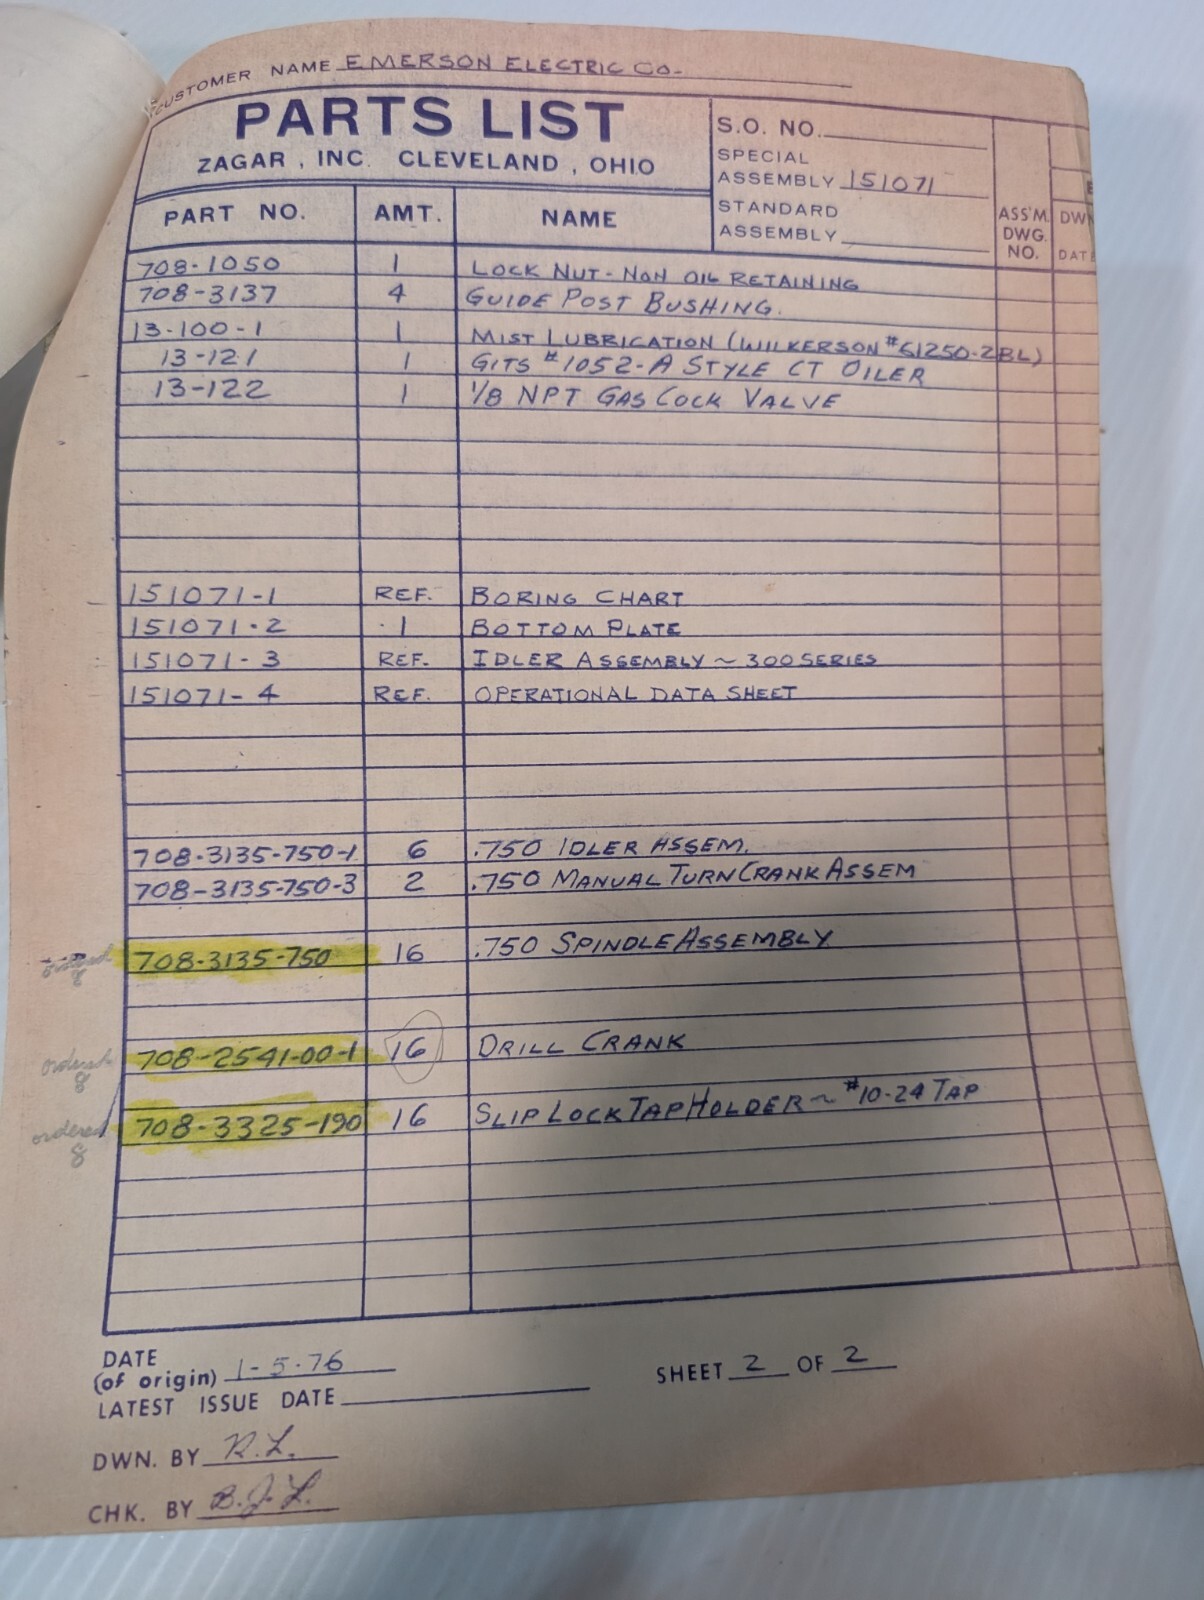 CUSTOMER NAME EMERSON ELECTRIC CO.
PARTS LIST
ZAGAR, INC. CLEVELAND, OHIO
S.O. NO.
SPECIAL
ASSEMBLY 151071
STANDARD
ASSEMBLY
ASS'M.
DWG.
NO.
DATE
PART NO. AMT. NAME
708-1050 1 LOCK NUT-NON OIL RETAINING
708-3137 4 GUIDE POST BUSHING.
13-100-1 1 MIST LUBRICATION (WILKERSON #61250-2BL)
13-121 1 GITS #1052-A STYLE CT OILER
13-122 1 1/8 NPT GAS COCK VALVE
151071-1 REF. BORING CHART
151071-2 1 BOTTOM PLATE
151071-3 REF. IDLER ASSEMBLY ~ 300 SERIES
151071-4 REF. OPERATIONAL DATA SHEET
708-3135-750-1 6 .750 IDLER ASSEM.
708-3135-750-3 2 .750 MANUAL TURN CRANK ASSEM
ordered 8 708-3135-750 16 .750 SPINDLE ASSEMBLY
ordered 8 708-2541-00-1 16 DRILL CRANK
ordered 8 708-3325-190 16 SLIP LOCK TAP HOLDER ~ #10-24 TAP
DATE
(of origin) 1-5-76
SHEET 2 OF 2
LATEST ISSUE DATE
DWN. BY R.L.
CHK. BY B.J.L.